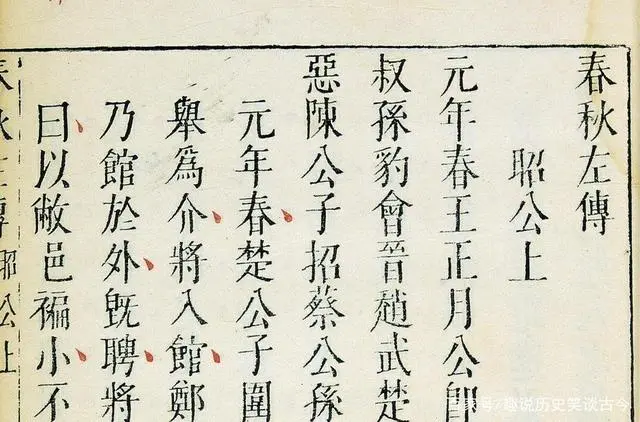 春秋左傳
昭公上
元年春王正月公卽
叔孫豹會晉趙武楚
惡陳公子招蔡公孫
元年春楚公子圍
舉爲介將入館鄭
乃館於外旣聘將
曰以敝邑褊小不
春秋左傳 昭公上
百家号/趣说历史笑谈古今